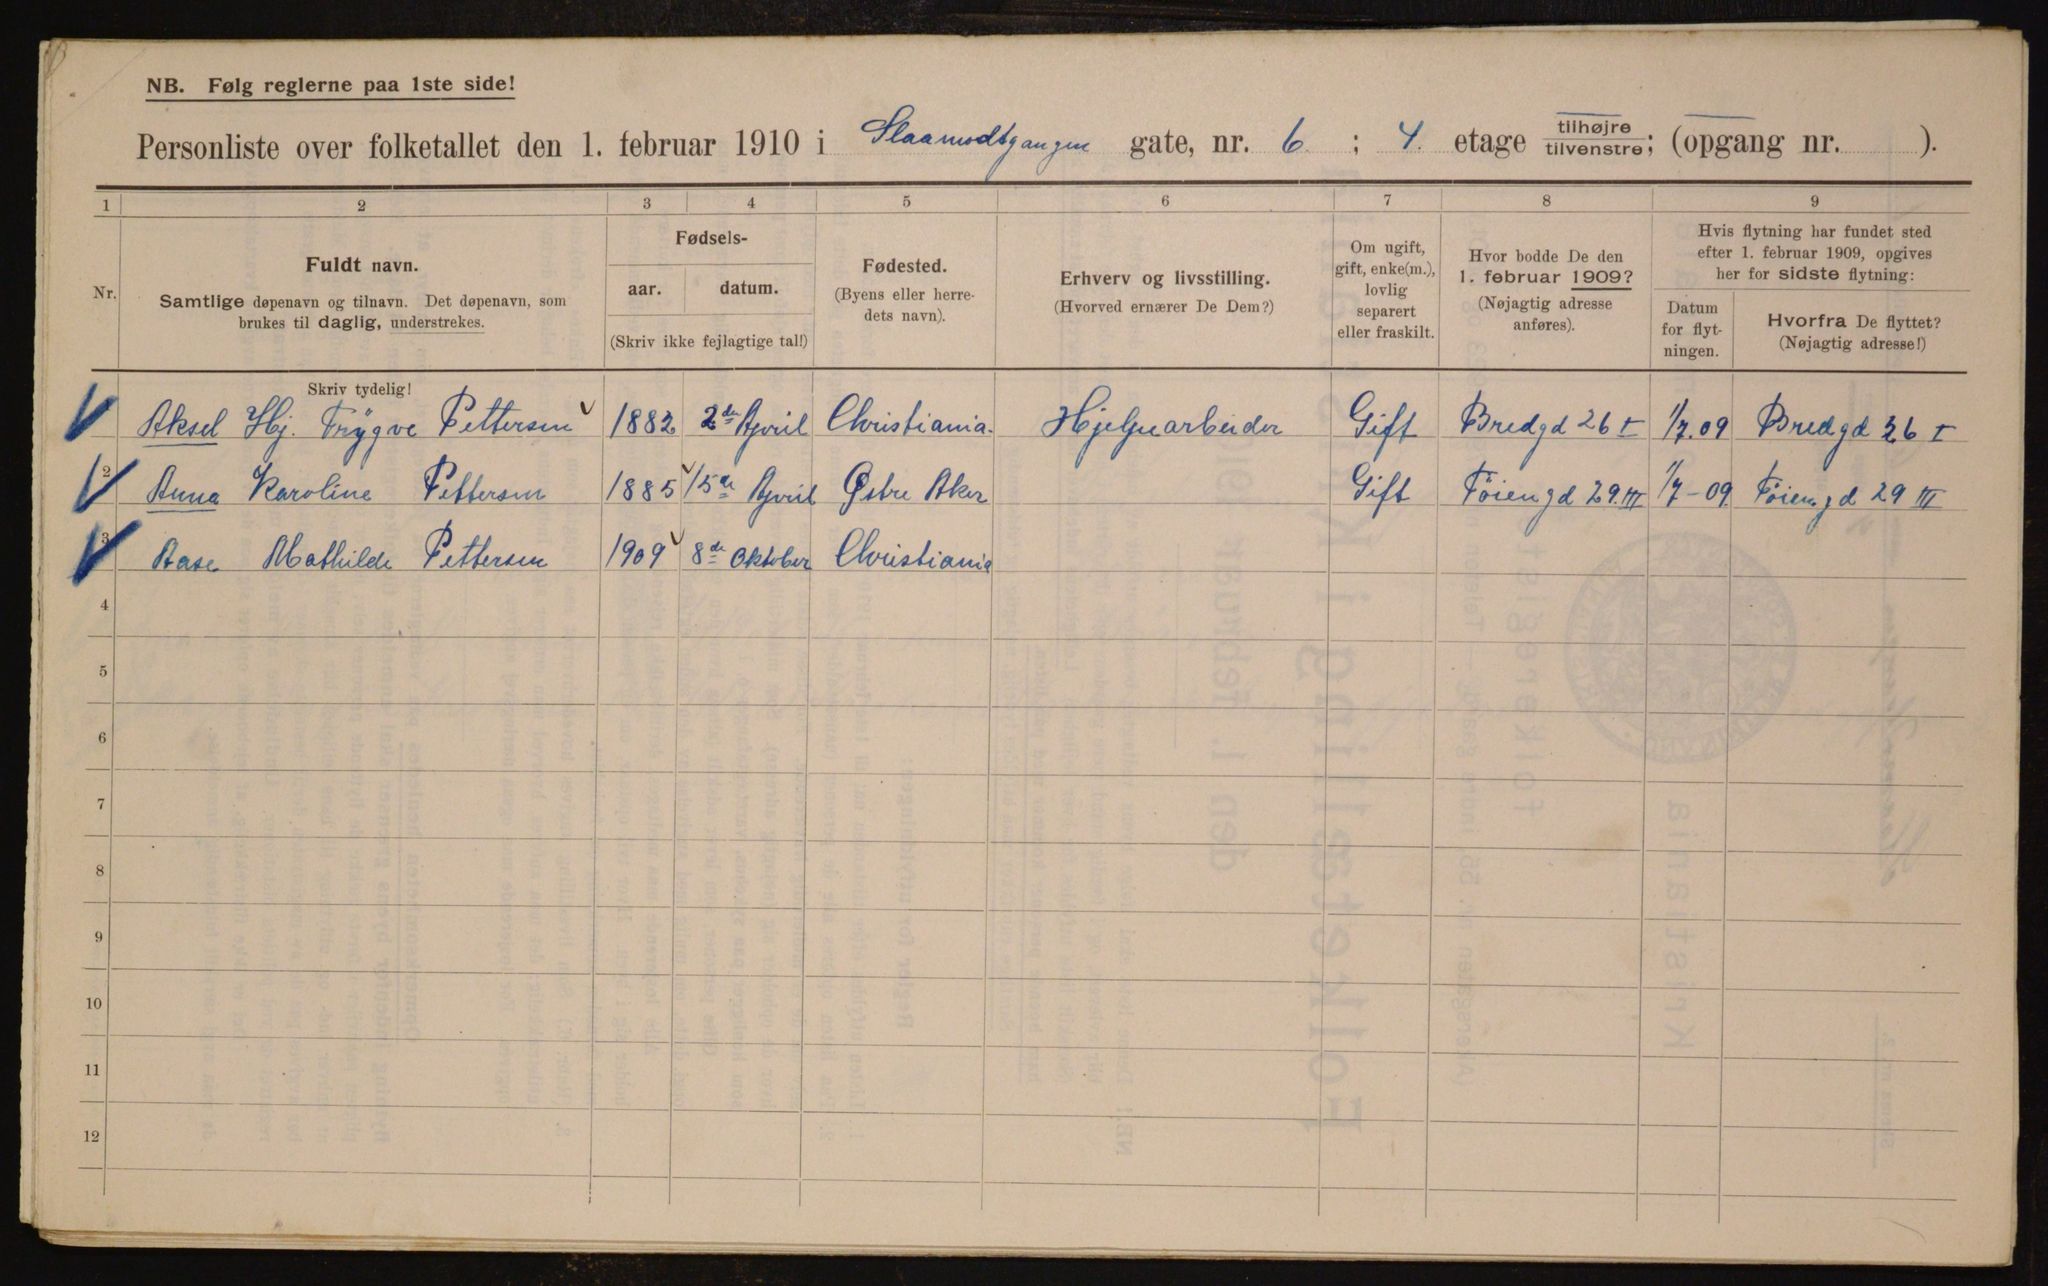 NB. Følg reglerne paa 1ste side!
Personliste over folketallet den 1. februar 1910 i Slaamodtgangen gate, nr. 6 ; 4. etage tilhøjre tilvenstre; (opgang nr. ).
1 2 3 4 5 6 7 8 9
Nr.
Fuldt navn.
Samtlige døpenavn og tilnavn. Det døpenavn, som
brukes til daglig, understrekes.
Skriv tydelig!
Fødsels-
aar. datum.
(Skriv ikke fejlagtige tal!)
Fødested.
(Byens eller herre-
dets navn).
Erhverv og livsstilling.
(Hvorved ernærer De Dem?)
Om ugift,
gift, enke(m.),
lovlig
separert
eller fraskilt.
Hvor bodde De den
1. februar 1909?
(Nøjagtig adresse
anføres).
Hvis flytning har fundet sted
efter 1. februar 1909, opgives
her for sidste flytning:
Datum
for flyt-
ningen.
Hvorfra De flyttet?
(Nøjagtig adresse!)
Aksel Hj. Trygve Pettersen 1882 2de April Christiania. Hjelpearbeider Gift Bredgd 26 I 1/7.09 Bredgd 26 I
2 Anna Karoline Pettersen 1885 15de April Østre Aker Gift Töiengd 29.III 1/7-09. Töiengd 29 III
3 Aase Mathilde Pettersen 1909 8de Oktober Christiania
4
5
6
7
8
9
10
11
12